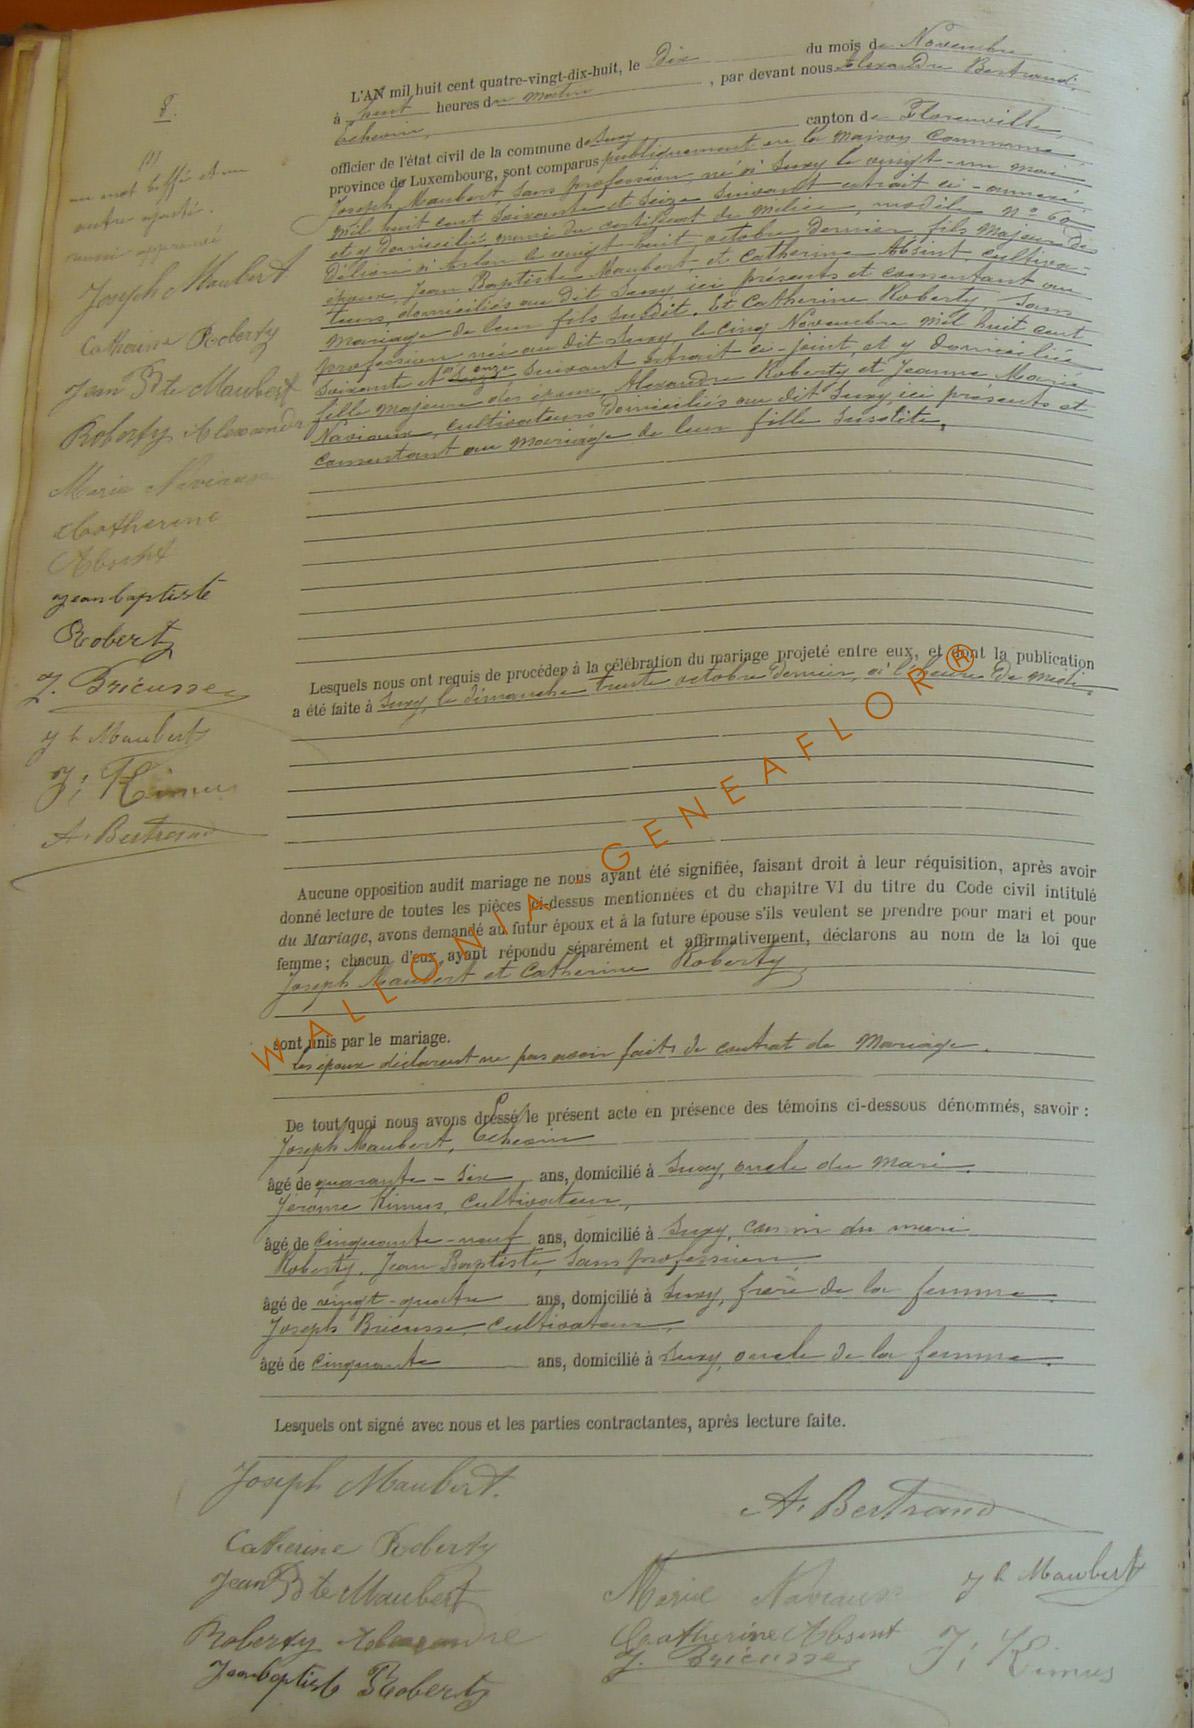 8.
(1)
un mot biffé et un
autre ajouté.
Joseph Maubert
Catherine Roberty
Jean Bte Maubert
Roberty Alexandre
Marie
Catherine
Absint
jean baptiste
Roberty
J. Bricusse
J h Maubert
J; Kimus
A. Bertrand
L'AN mil huit cent quatre-vingt-dix-huit, le Dix du mois de Novembre
à huit heures du matin, par devant nous Alexandre Bertrand,
Echevin,
officier de l'état civil de la commune de Suxy canton de Florenville
province de Luxembourg, sont comparus publiquement en la maison commune,
Joseph Maubert, sans profession, né à Suxy le vingt-un mai
mil huit cent soixante et seize suivant extrait ci-annexé,
et y domicilié, muni du certificat de milice, modèle n° 60
délivré à Arlon le vingt huit octobre dernier, fils majeur des
époux, Jean Baptiste Maubert, et Catherine Absint, cultiva-
teurs domiciliés au dit Suxy ici présents et consentant au
mariage de leur fils susdit. Et Catherine Roberty, sans
profession née au dit Suxy le cinq Novembre mil huit cent
soixante et onze suivant extrait ci-joint, et y domiciliée
fille majeure des époux, Alexandre Roberty et Jeanne Marie
Naviaux, cultivateurs domiciliés au dit Suxy, ici présents et
consentant au mariage de leur fille susdite,
Lesquels nous ont requis de procéder à la célébration du mariage projeté entre eux, et dont la publication
a été faite à Suxy, le dimanche trente octobre dernier, à l'heure de midi,
Aucune opposition audit mariage ne nous ayant été signifiée, faisant droit à leur réquisition, après avoir
donné lecture de toutes les pièces ci-dessus mentionnées et du chapitre VI du titre du Code civil intitulé
du Mariage, avons demandé au futur époux et à la future épouse s'ils veulent se prendre pour mari et pour
femme; chacun d'eux ayant répondu séparément et affirmativement, déclarons au nom de la loi que
Joseph Maubert et Catherine Roberty
sont unis par le mariage.
Les époux déclarent ne pas avoir fait de contrat de mariage.
De tout quoi nous avons dressé le présent acte en présence des témoins ci-dessous dénommés, savoir :
Joseph Maubert, Echevin
âgé de quarante-six ans, domicilié à Suxy, oncle du mari
Jérome Kimus, cultivateur,
âgé de cinquante-neuf ans, domicilié à Suxy, cousin du mari
Roberty, Jean Baptiste, sans profession
âgé de vingt-quatre ans, domicilié à Suxy, frère de la femme.
Joseph Bricusse, cultivateur,
âgé de cinquante ans, domicilié à Suxy, oncle de la femme.
Lesquels ont signé avec nous et les parties contractantes, après lecture faite.
Joseph Maubert.
A. Bertrand
Catherine Roberty
Jean Bte Maubert
Marie Naviaux
J h Maubert
Roberty Alexandre
Catherine Absint
J. Bricusse
J; Kimus
Jean baptiste Roberty
WALLONIA GENEAFLOR®